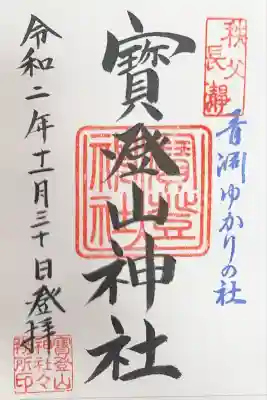 秩父
長瀞
青淵ゆかりの社
寶登山神社
寶登山神社
令和二年十一月三十日登拝
寶登山
神社々
務所印